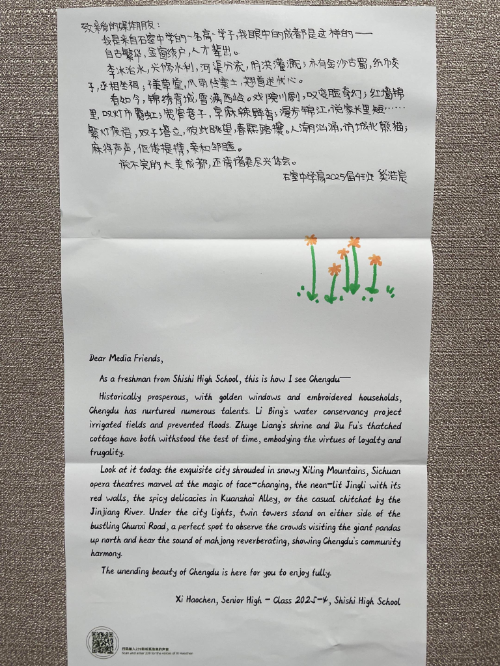 致亲爱的媒体朋友：
我是来自石室中学的一名高一学子，我眼中的成都是这样的——
自古繁华，金窗绣户，人才辈出。
李冰治水，兴修水利，河渠分流，防洪灌溉；金沙古蜀，纸币交
子，丞相
看如今，锦绣蓉城，雪满西岭。戏院川剧，叹变脸奇幻；红墙锦
里，叹灯市霓虹；宽窄巷子，享麻辣鲜香；漫步锦江，说家长里短……
双子塔立，彼此眺望，春熙路攘，人潮汹涌，访城北熊猫；
麻将声声，
说不完的大美成都，还请诸君尽兴体会。
石室中学高2025届4班 奚浩宸
Dear Media Friends,
As a freshman from Shishi High School, this is how I see Chengdu—
Historically prosperous, with golden windows and embroidered households,
Chengdu has nurtured numerous talents. Li Bing's water conservancy project
irrigated fields and prevented floods. Zhuge Liang's shrine and Du Fu's thatched
cottage have both withstood the test of time, embodying the virtues of loyalty and
frugality.
Look at it today: the exquisite city shrouded in snowy Xiling Mountains, Sichuan
opera theatres marvel at the magic of face-changing, the neon-lit Jingli with its
red walls, the spicy delicacies in Kuanzhai Alley, or the casual chitchat by the
JinJiang River. Under the city lights, twin towers stand on either side of the
bustling Chunxi Road, a perfect spot to observe the crowds visiting the giant pandas
up north and hear the sound of mahjong reverberating, showing Chengdu's community
harmony.
The unending beauty of Chengdu is here for you to enjoy fully.
Xi Haochen, Senior High - Class 2025-4, Shishi High School